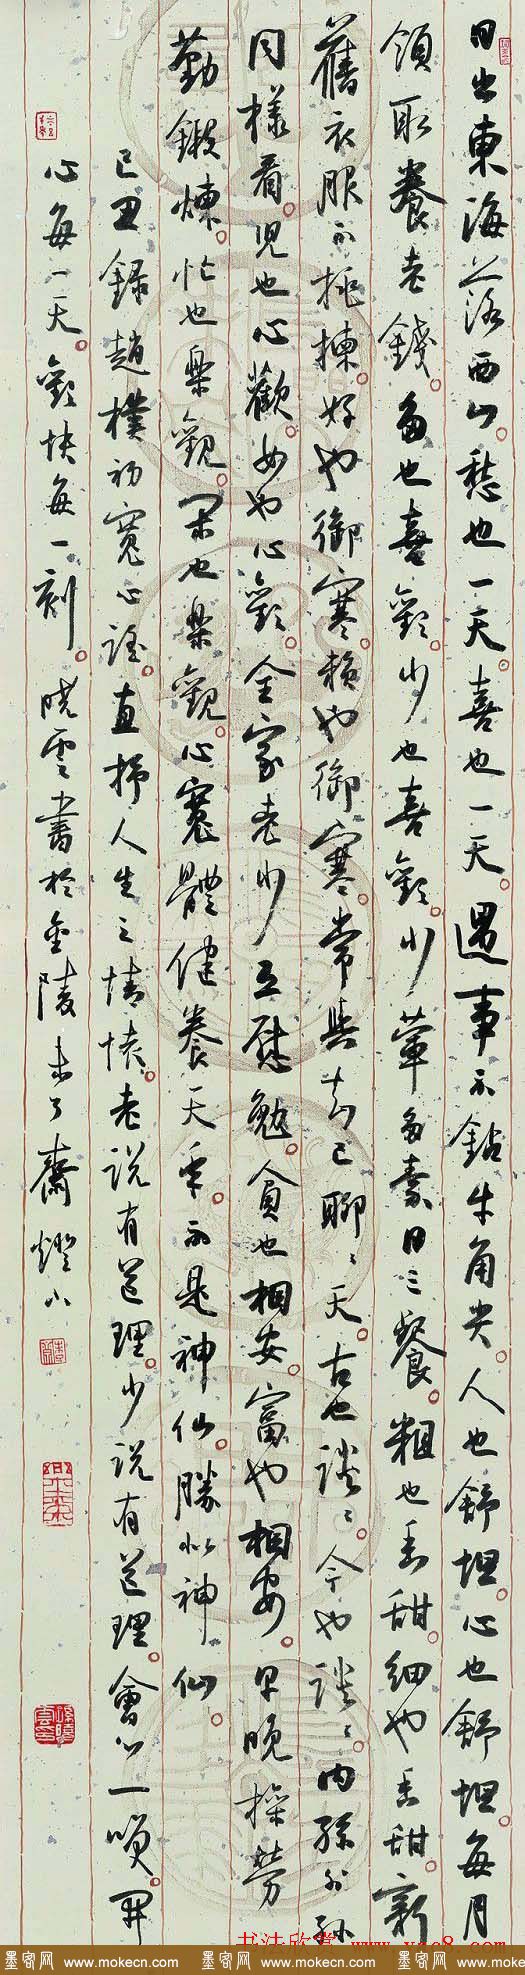 日出東海落西山愁也一天喜也一天遇事不鈷牛角尖人也舒坦心也舒坦每月
領取養老錢多也喜歡少也喜歡少葷多素日三餐粗也香甜細也香甜新
舊衣服不挑揀好也御寒賴也御寒常與知己聊聊天古也談談今也談談內孫外孫
同樣看兒也心歡女也心歡全家老少互慰勉貧也相安富也相安早晚操勞
勤鍛煉忙也樂觀閑也樂觀心寬體健養天年不是神仙勝似神仙
己丑錄趙樸初寬心謠直抒人生之情懷老說有道理少說有道理會心一笑開
心每一天歡快每一刻曉雲書於金陵未了齋燈下
书法欣赏
墨客网 www.mokecn.com 墨客网 www.mokecn.com 墨客网 www.mokecn.com